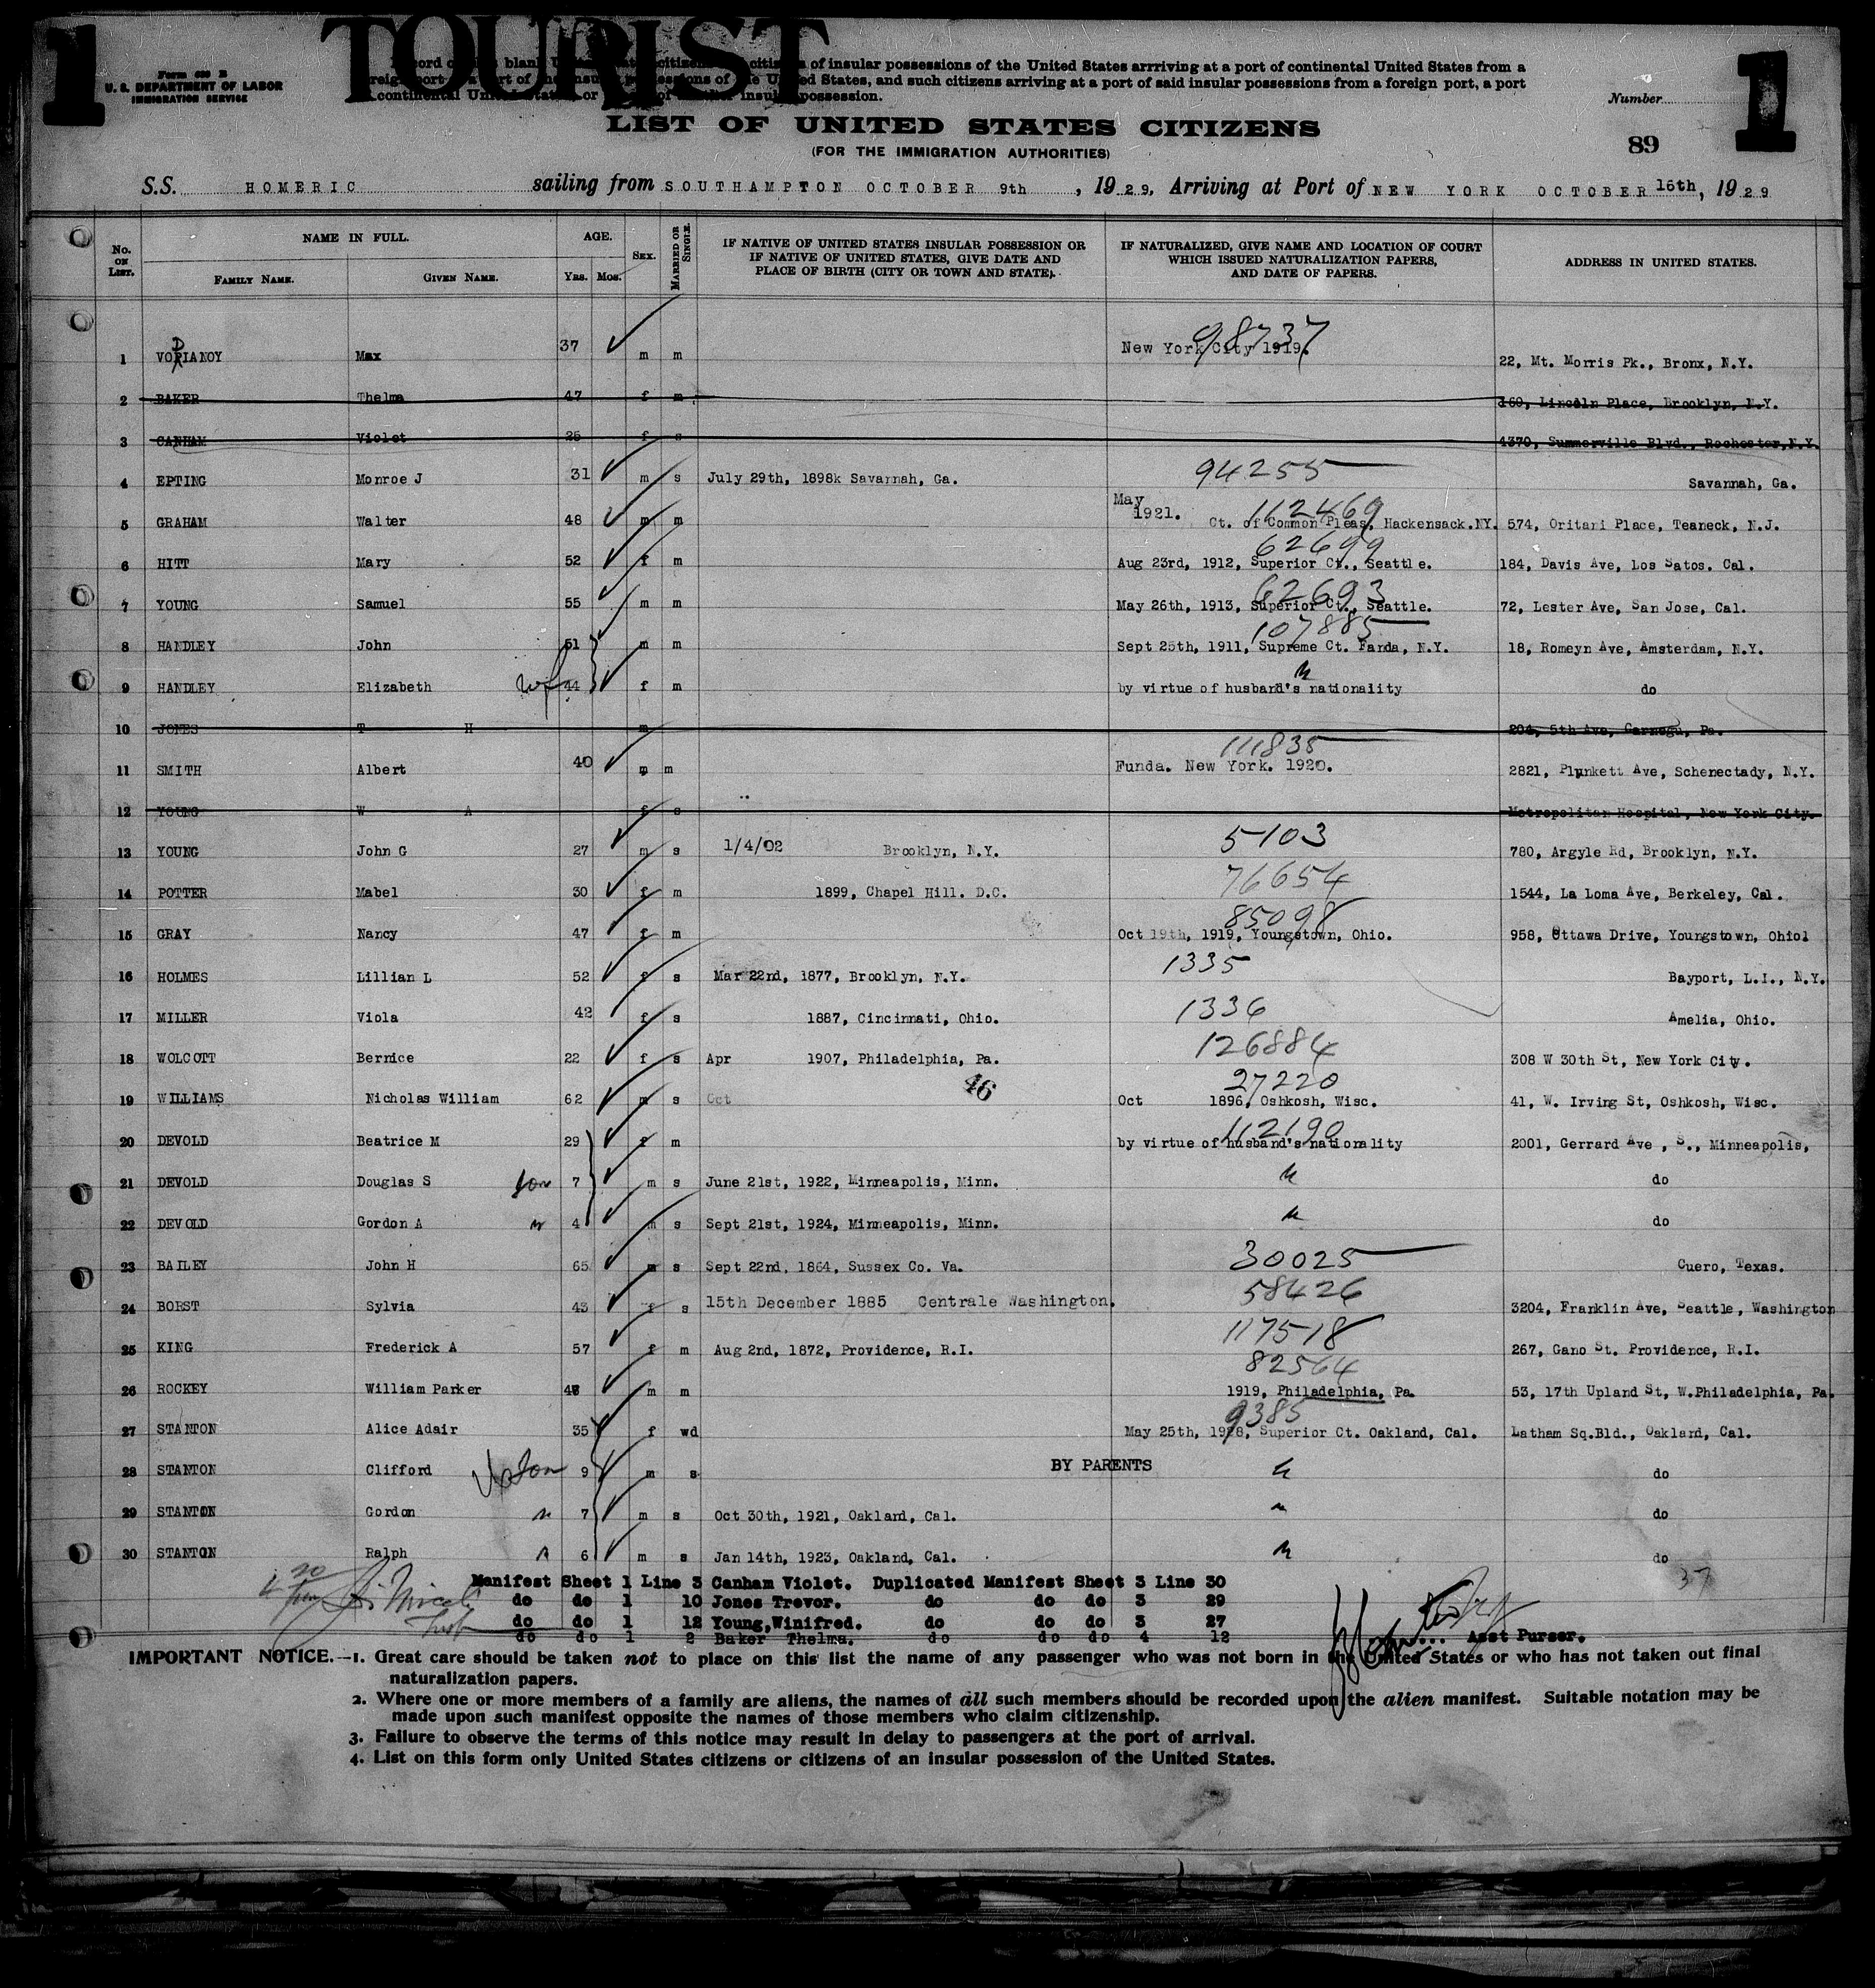 1 TOURIST 1
Form 630 B
U. S. DEPARTMENT OF LABOR
IMMIGRATION SERVICE
of insular possessions of the United States arriving at a port of continental United States from a
and such citizens arriving at a port of said insular possessions from a foreign port, a port
possession.
Number
LIST OF UNITED STATES CITIZENS
(FOR THE IMMIGRATION AUTHORITIES)
89
S.S. HOMERIC sailing from SOUTHAMPTON OCTOBER 9th, 1929, Arriving at Port of NEW YORK OCTOBER 16th, 1929
No. ON LIST. NAME IN FULL. FAMILY NAME. GIVEN NAME. AGE. YRS. MOS. SEX. MARRIED OR SINGLE. IF NATIVE OF UNITED STATES INSULAR POSSESSION OR IF NATIVE OF UNITED STATES, GIVE DATE AND PLACE OF BIRTH (CITY OR TOWN AND STATE). IF NATURALIZED, GIVE NAME AND LOCATION OF COURT WHICH ISSUED NATURALIZATION PAPERS, AND DATE OF PAPERS. ADDRESS IN UNITED STATES.
1 VODIANOY Max 37 m m New York City 1919. 98737 22, Mt. Morris Pk., Bronx, N.Y.
2 BAKER Thelma 47 f m 160, Lincoln Place, Brooklyn, N.Y.
3 CANHAM Violet 25 f s 4370, Summerville Blvd., Rochester, N.Y.
4 EPTING Monroe J 31 m s July 29th, 1898k Savannah, Ga. 94255 Savannah, Ga.
5 GRAHAM Walter 48 m m May 1921. Ct. of Common Pleas, Hackensack.NY. 112469 574, Oritani Place, Teaneck, N.J.
6 HITT Mary 52 f m Aug 23rd, 1912, Superior Ct., Seattle. 62699 184, Davis Ave, Los Satos. Cal.
7 YOUNG Samuel 55 m m May 26th, 1913, Superior Ct., Seattle. 62693 72, Lester Ave, San Jose, Cal.
8 HANDLEY John 51 m m Sept 25th, 1911, Supreme Ct. Fanda, N.Y. 107885 18, Romeyn Ave, Amsterdam, N.Y.
9 HANDLEY Elizabeth wf 44 f m by virtue of husband's nationality do
10 JONES T H m 204, 5th Ave, Carnegu, Pa.
11 SMITH Albert 40 m m Funda. New York. 1920. 111835 2821, Plunkett Ave, Schenectady, N.Y.
12 YOUNG W A f s Metropolitan Hospital, New York City.
13 YOUNG John G 27 m s 1/4/02 Brooklyn, N.Y. 5103 780, Argyle Rd, Brooklyn, N.Y.
14 POTTER Mabel 30 f m 1899, Chapel Hill. D.C. 76654 1544, La Loma Ave, Berkeley, Cal.
15 GRAY Nancy 47 f m Oct 19th, 1919, Youngstown, Ohio. 85098 958, Ottawa Drive, Youngstown, Ohiol
16 HOLMES Lillian L 52 f s Mar 22nd, 1877, Brooklyn, N.Y. 1335 Bayport, L.I., N.Y.
17 MILLER Viola 42 f s 1887, Cincinnati, Ohio. 1336 Amelia, Ohio.
18 WOLCOTT Bernice 22 f s Apr 1907, Philadelphia, Pa. 126884 308 W 30th St, New York City.
19 WILLIAMS Nicholas William 62 m s Oct 46 Oct 1896, Oshkosh, Wisc. 27220 41, W. Irving St, Oshkosh, Wisc.
20 DEVOLD Beatrice M 29 f m by virtue of husband's nationality 112190 2001, Gerrard Ave , S., Minneapolis,
21 DEVOLD Douglas S son 7 m s June 21st, 1922, Minneapolis, Minn. do
22 DEVOLD Gordon A 4 m s Sept 21st, 1924, Minneapolis, Minn. do
23 BAILEY John H 65 m s Sept 22nd, 1864, Sussex Co. Va. 30025 Cuero, Texas.
24 BORST Sylvia 43 f s 15th December 1885 Centrale Washington. 58426 3204, Franklin Ave, Seattle, Washington
25 KING Frederick A 57 f m Aug 2nd, 1872, Providence, R.I. 117518 267, Gano St. Providence, R.I.
26 ROCKEY William Parker 48 m m 1919, Philadelphia, Pa. 82564 53, 17th Upland St, W.Philadelphia, Pa.
27 STANTON Alice Adair 35 f wd May 25th, 1928, Superior Ct. Oakland, Cal. 9385 Latham Sq.Bld., Oakland, Cal.
28 STANTON Clifford son 9 m s BY PARENTS do
29 STANTON Gordon 7 m s Oct 30th, 1921, Oakland, Cal. do
30 STANTON Ralph 6 m s Jan 14th, 1923, Oakland, Cal. do
37
Manifest Sheet 1 Line 3 Canham Violet. Duplicated Manifest Sheet 3 Line 30
do do 1 10 Jones Trevor. do do do 3 29
do do 1 12 Young,Winifred. do do do 3 27
do do 1 2 Baker Thelma. do do do 4 12
Asst Purser.
IMPORTANT NOTICE.—1. Great care should be taken not to place on this list the name of any passenger who was not born in the United States or who has not taken out final
naturalization papers.
2. Where one or more members of a family are aliens, the names of all such members should be recorded upon the alien manifest. Suitable notation may be
made upon such manifest opposite the names of those members who claim citizenship.
3. Failure to observe the terms of this notice may result in delay to passengers at the port of arrival.
4. List on this form only United States citizens or citizens of an insular possession of the United States.